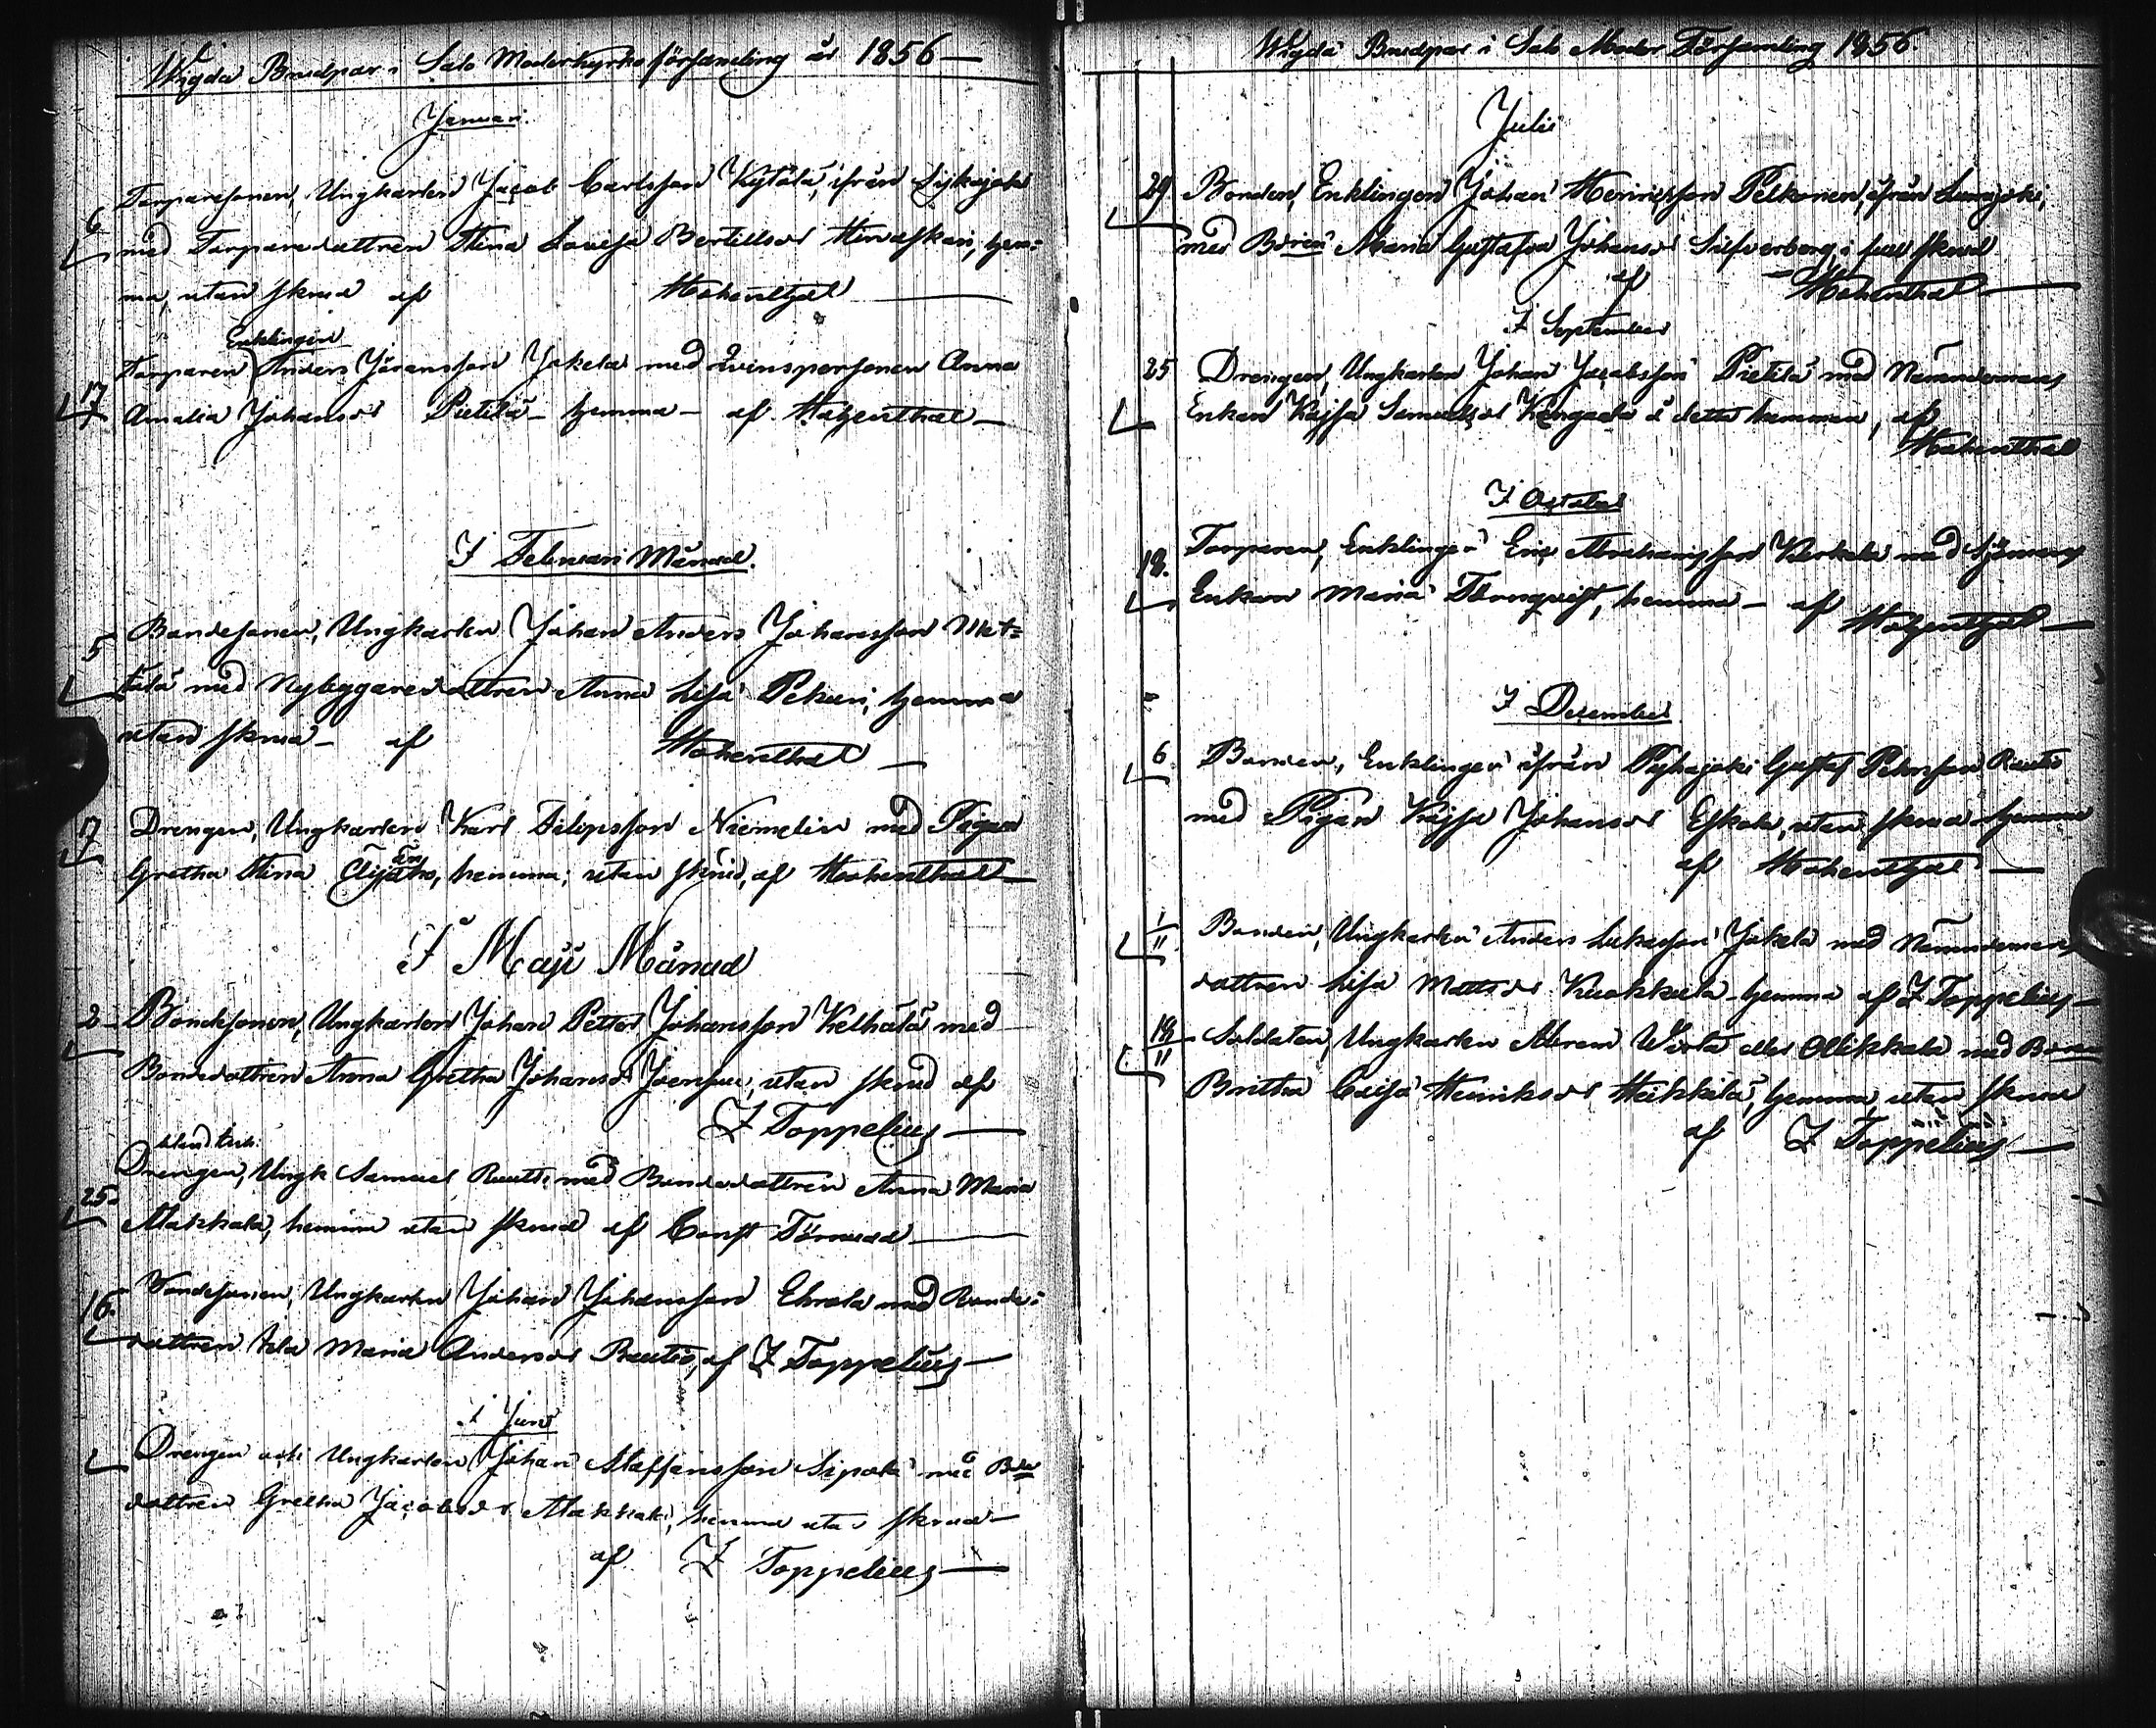 Wigda Brudpar i Salo Moderkyrko församling år 1856 —
Januari
6 Torparesonen, Ungkarlen Jacob Carlsson Kytölä, ifrån Siikajoki
med Torparedottren Stina Lovisa Bertilsdr Hirvaskari, hem=
ma, utan skrud af Hohenthal —
Enklingen
17 Torparen Anders Jöransson Jokela med Qvinspersonen Anna
Amalia Johansdr Pietilä – hemma – af Hohenthal —
I Februari Månad.
5 Bondesonen, Ungkarlen Johan Anders Johansson Mat=
tala med Nybyggaredottren Anna Lisa Pekuri, hemma
utan skrud – af Hohenthal —
17 Drengen, Ungkarlen Karl Filipsson Niemelin med Pigan
Gretha Stina hemma; utan skrud, af Hohenthal —
I Maji Månad
2 Bondesonen, Ungkarlen Johan Petter Johansson Kelhälä med
Bondedottren Anna Gretha Johansdr Joensuu, utan skrud af
Z Toppelius —
25. Drengen, Ungk Samuel Rautio med Bondedottren Anna Maria
hemma utan skrud af Const Törnudd —
16. Bondesonen, Ungkarlen Johan Johansson Ehrola med Bonde=
dottren Maria Andersdr Rautio, af Z Toppelius —
i Juni
Drengen och Ungkarlen Johan Staffansson Sipola med Bde
dottren Gretha Jacobsdr hemma utan skrud —
af Z Toppelius —
Wigda Brudpar i Salo Moder Församling 1856.
Julii
29 Bonden, Enklingen Johan Henricsson Pelkonen, ifrån
med Maria Gustafva Johansdr Silfverberg, i full skrud
af Hohenthal —
I September
25 Drengen, Ungkarlen Johan Jacobsson Pietilä med Nämndemans
Enkan Kajsa Samuelsdr Kangas å detta hemman, af
Hohenthal
I October
18. Torparen, Enklingen Eric Abrahamsson Kerkelä med Sjömans
Enkan Maria Törnqvist, hemma – af Hohenthal —
I December
6 Bonden, Enklingen ifrån Pyhajoki Gustaf Petersson Rautio
med Pigan Kajsa Johansdr Eskola, utan skrud hemma
af Hohenthal —
1/11 Bonden, Ungkarlen Anders Lukasson Jokela med Nämndemans
dottren Lisa Mattsdr Kuokkala – hemma af Z Toppelius —
18/11 Soldaten, Ungkarlen Abram Wirta eller Ollikkala med
Britha Cajsa Henriksdr Heikkilä, hemma, utan skrud
af Z Toppelius —